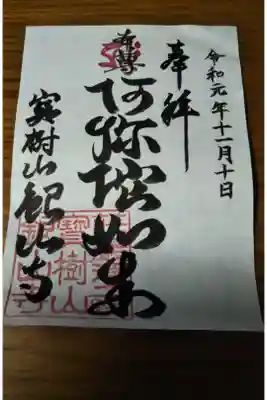 令和元年十一月十日
奉拝
本尊
阿弥陀如来
宝樹山